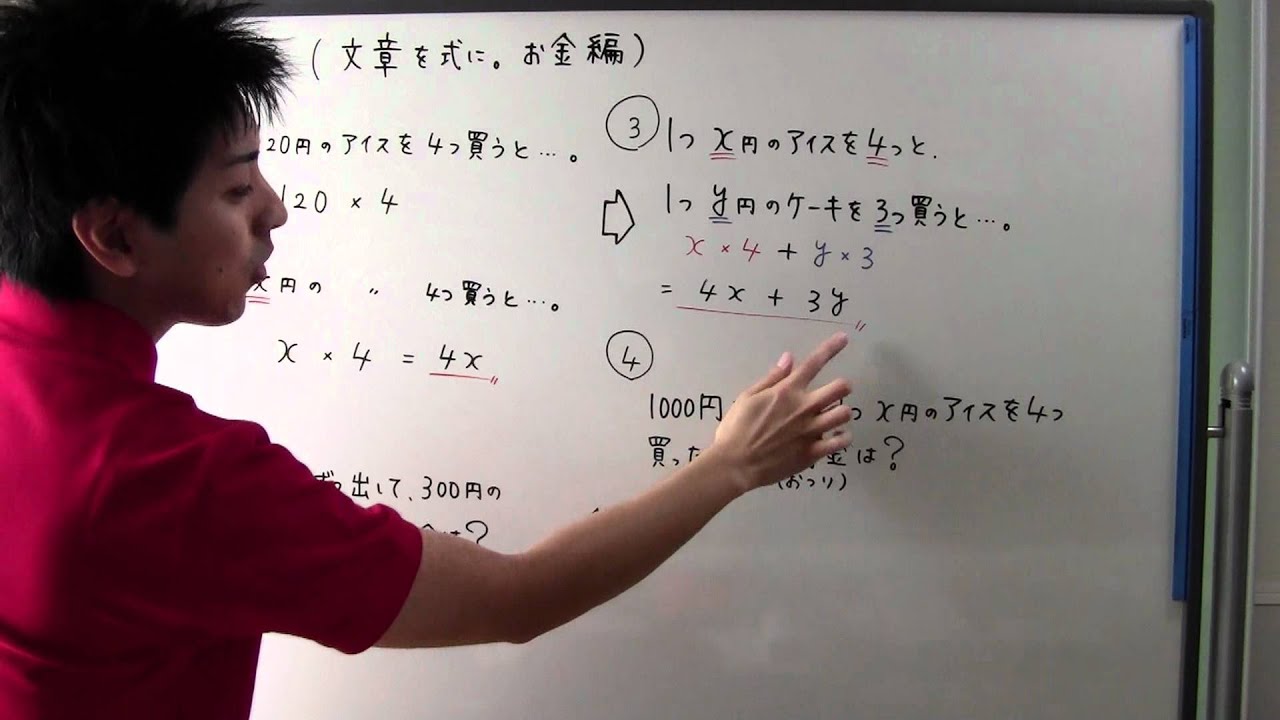 (文章を式に。お金編)
20円のアイスを4つ買うと…。
120 × 4
x円の 〃 4つ買うと…。
x × 4 = 4x
ずつ出して、300円の
は?
③ 1つx円のアイスを4つと、
⇨ 1つy円のケーキを3つ買うと…。
x × 4 + y × 3
= 4x + 3y
④
1000円 x円のアイスを4つ
買った 金は?
(おつり)